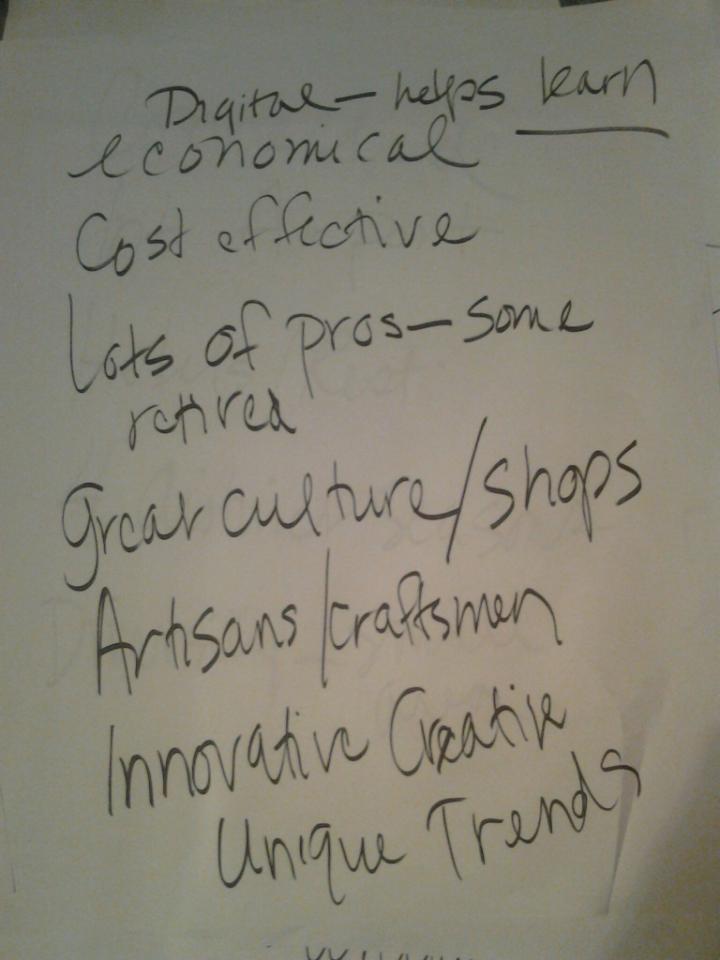 Digital — helps learn
economical
Cost effective
Lots of pros — some
retired
Great culture/shops
Artisans/craftsmen
Innovative Creative
Unique Trends